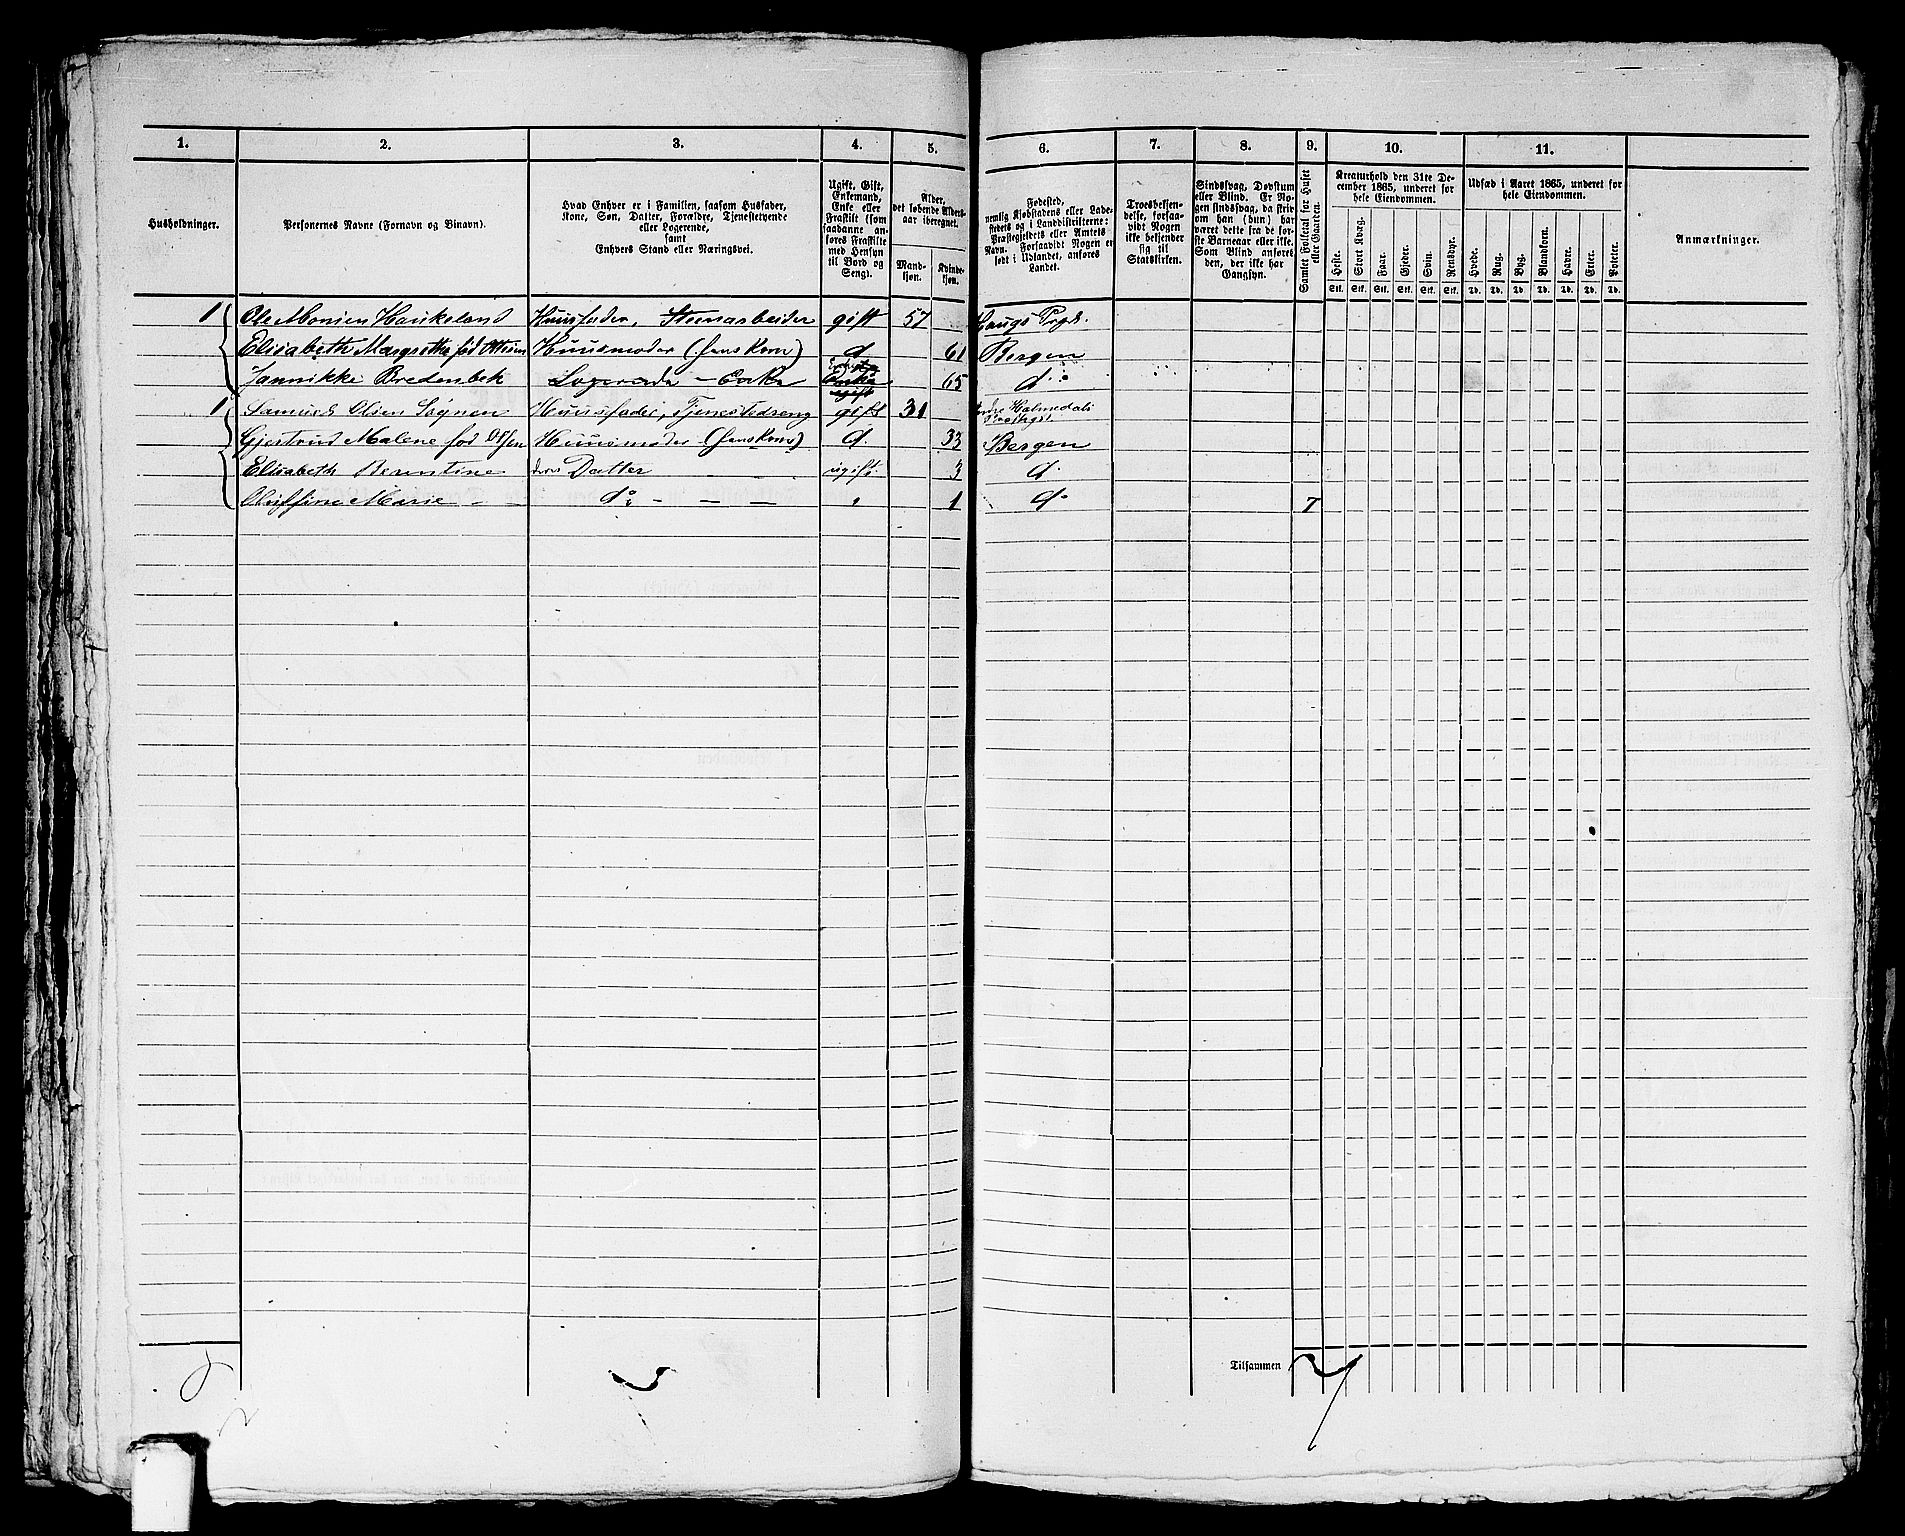 1. 2. 3. 4. 5. 6. 7. 8. 9. 10. 11.
Husholdninger.
Personernes Navne (Fornavn og Binavn).
Hvad Enhver er i Familien, saasom Husfader,
Kone, Søn, Datter, Forældre, Tjenestetyende
eller Logerende,
samt
Enhvers Stand eller Næringsvei.
Ugift, Gift,
Enkemand,
Enke eller
Fraskilt (som
saadanne an-
føres Fraskilte
med Hensyn
til Bord og
Seng).
Alder,
det løbende Alders-
aar iberegnet.
Mand-
kjøn.
Kvinde-
kjøn.
Fødested,
nemlig Kjøbstadens eller Lade-
stedets og i Landdistrikterne:
Præstegjeldets eller Amtets
Navn. Forsaavidt Nogen er
født i Udlandet, anføres
Landet.
Troesbekjen-
delse, forsaa-
vidt Nogen
ikke bekjender
sig til
Statskirken.
Sindssvag, Døvstum
eller Blind. Er No-
gen sindssvag, da skriv
om han (hun) har
været dette fra de før-
ste Barneaar eller ikke.
Som Blind anføres
den, der ikke har
Gangsyn.
Samlet Folketal for Huset
eller Gaarden.
Kreaturhold den 31te De-
cember 1865, underet for
hele Eiendommen.
Heste. Stort Kvæg. Faar. Gjeder. Svin. Rensdyr.
Stk. Stk. Stk. Stk. Stk. Stk.
Udsæd i Aaret 1865, underet for
hele Eiendommen.
Hvede. Rug. Byg. Blandkorn. Havre. Erter. Poteter.
Td. Td. Td. Td. Td. Td. Td.
Anmærkninger.
1 Ole Monsen Haukeland Huusfader, Steenarbeider gift 57 Haugs Prgd.
Elisabeth Margrethe fød Ottesen Huusmoder (hans Kone) d 61 Bergen
Jannikke Bredenbek Logerende – Enke 65 do
1 Samuel Olsen Sognen Huusfader, gift 31 Holmedals
Gjertrud Malene fød Olsen Huusmoder (hans Kone) d. 33 Bergen
Elisabeth Berentine deres Datter ugift. 3 d.
Marie - - do - - - " 1 do 7
Tilsammen 7